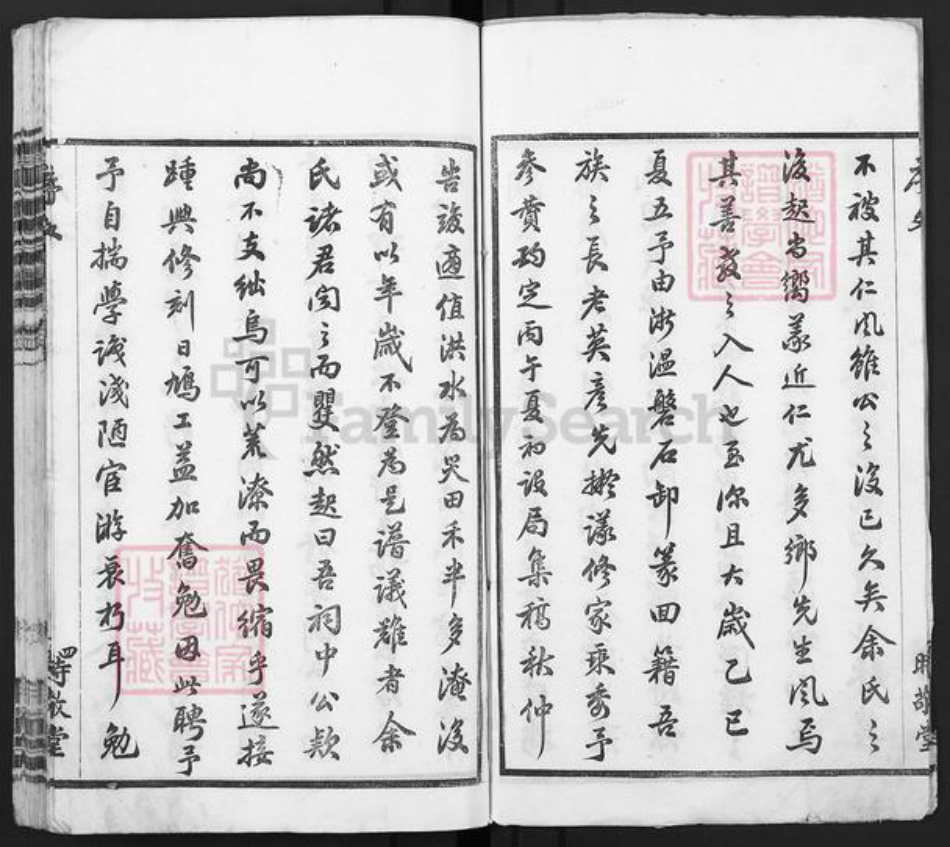 不被其仁風雖公之沒已久矣余氏之
後起尚嚮慕近仁尤多鄉先生風焉
其善教之入人也至深且大歲乙巳
夏五予由浙溫磐石卸篆回籍吾
族之長老英彥先擬議修家乘委予
參贊酌定丙午夏初設局集稿秋仲
告竣適值洪水為災田禾半多淹沒
或有以年歲不登為是譜議難者余
氏諸君聞之而瞿然起曰吾祠中公款
尚不支絀烏可以荒潦而畏縮乎遂接
踵興修刻日鳩工益加奮勉因此聘予
予自揣學識淺陋宦游衰朽耳勉
序文
四
時敬堂
FamilySearch